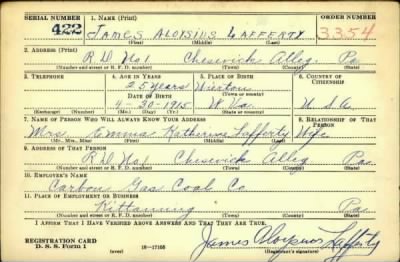 SERIAL NUMBER 1. NAME (Print) ORDER NUMBER
422 JAMES ALOYSIUS LAFFERTY 3354
(First) (Middle) (Last)
2. ADDRESS (Print)
R D No 1 Cheswick Alleg. Pa.
(Number and street or R. F. D. number) (Town) (County) (State)
3. TELEPHONE 4. AGE IN YEARS 5. PLACE OF BIRTH 6. COUNTRY OF CITIZENSHIP
25 years Wierton
DATE OF BIRTH (Town or county)
4-30-1915 W. Va. U S A
(Exchange) (Number) (Mo.) (Day) (Yr.) (State or country)
7. NAME OF PERSON WHO WILL ALWAYS KNOW YOUR ADDRESS 8. RELATIONSHIP OF THAT PERSON
Mrs. Emma Katherine Lafferty Wife
(Mr., Mrs., Miss) (First) (Middle) (Last)
9. ADDRESS OF THAT PERSON
R D No 1 Cheswick Alleg Pa.
(Number and street or R. F. D. number) (Town) (County) (State)
10. EMPLOYER'S NAME
Carbon Gas Coal Co
11. PLACE OF EMPLOYMENT OR BUSINESS
Kittanning Pa.
(Number and street or R. F. D. number) (Town) (County) (State)
I AFFIRM THAT I HAVE VERIFIED ABOVE ANSWERS AND THAT THEY ARE TRUE.
REGISTRATION CARD
D. S. S. Form 1 (over) 16-17105
James Aloysius Lafferty
(Registrant's signature)